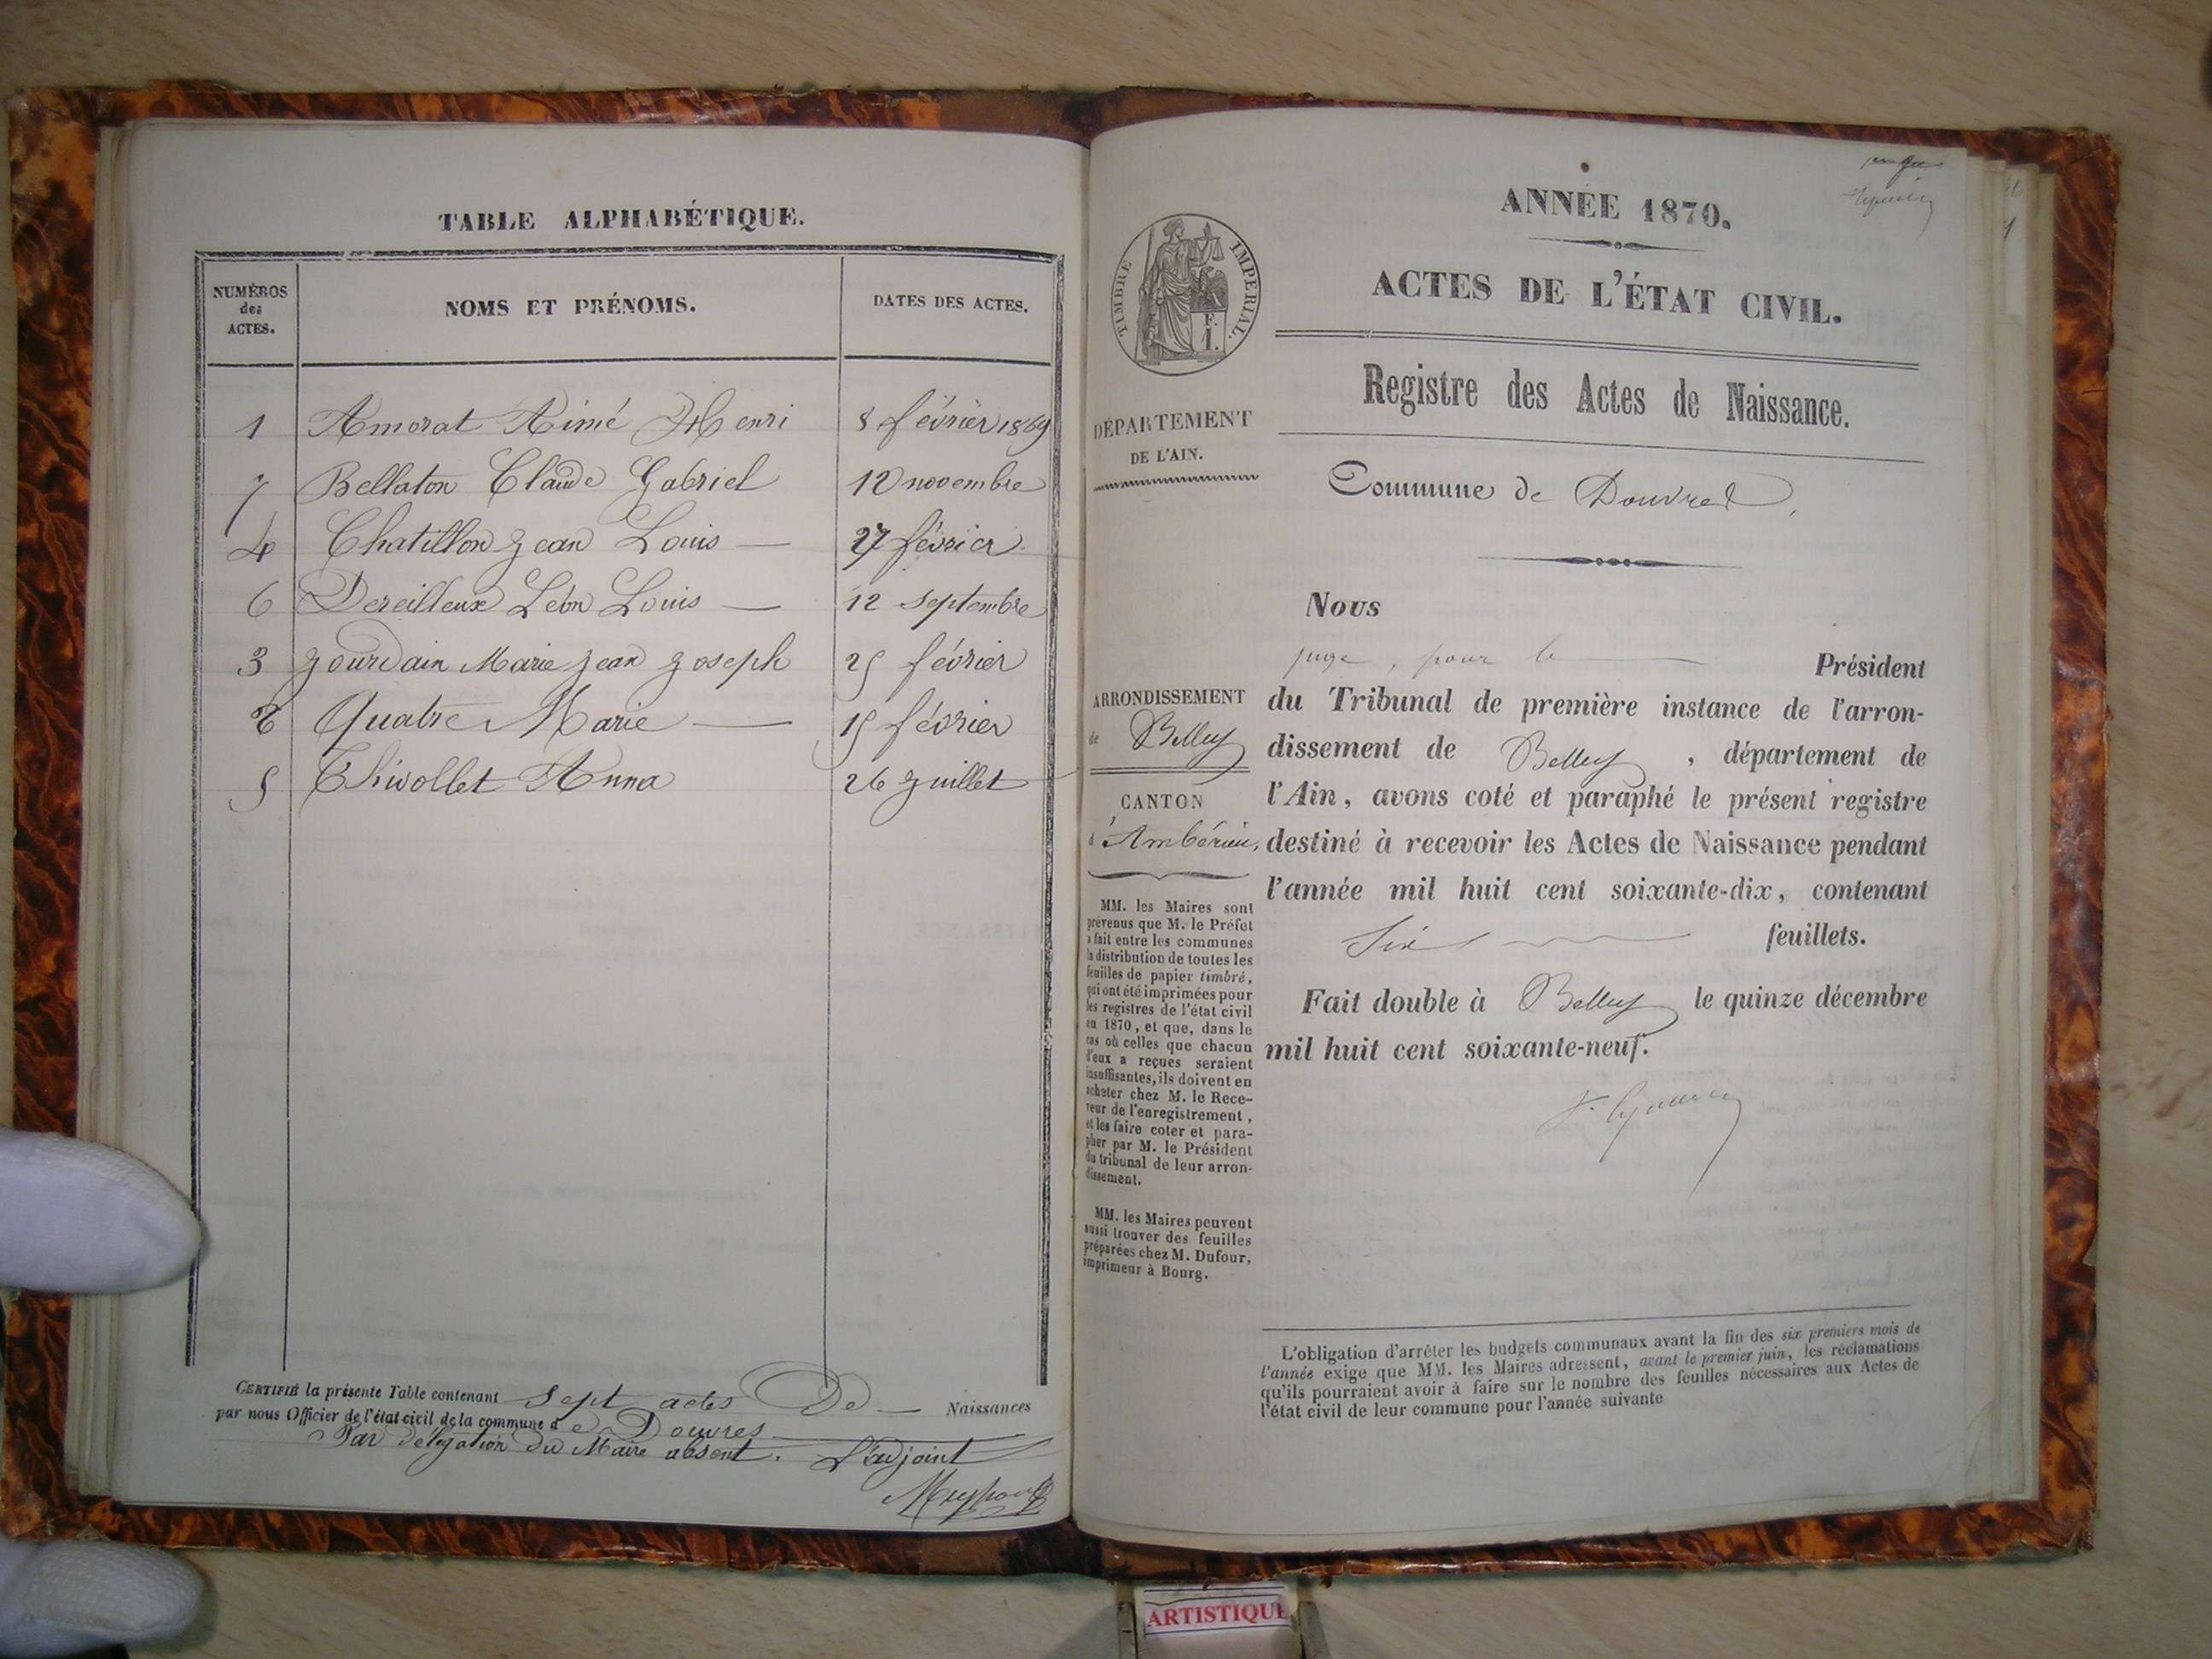 TABLE ALPHABÉTIQUE.
NUMÉROS
des
ACTES.
NOMS ET PRÉNOMS.
DATES DES ACTES.
1 Amorat Aimé Henri 8 février 1869
7 Bellaton Claude Gabriel 12 novembre
4 Chatillon Jean Louis — 27 février
6 Dereilleux Léon Louis — 12 septembre
3 Jourdain Marie Jean Joseph 25 février
2 Quatre Marie — 15 février
5 Thivollet Anna 26 Juillet
CERTIFIÉ la présente Table contenant sept actes De — Naissances
par nous Officier de l'état civil de la commune de Douvres
Par délégation du Maire absent. L'adjoint
TIMBRE IMPÉRIAL.
F.
1.
DÉPARTEMENT
DE L'AIN.
ARRONDISSEMENT
de Belley
CANTON
d'Ambérieu,
MM. les Maires sont
prévenus que M. le Préfet
a fait entre les communes
la distribution de toutes les
feuilles de papier timbré,
qui ont été imprimées pour
les registres de l'état civil
en 1870, et que, dans le
cas où celles que chacun
d'eux a reçues seraient
insuffisantes, ils doivent en
acheter chez M. le Rece-
veur de l'enregistrement,
et les faire coter et para-
pher par M. le Président
du tribunal de leur arron-
dissement.
MM. les Maires peuvent
aussi trouver des feuilles
préparées chez M. Dufour,
imprimeur à Bourg.
ANNÉE 1870.
ACTES DE L'ÉTAT CIVIL.
Registre des Actes de Naissance.
Commune de Douvres,
Nous
juge, pour le — Président
du Tribunal de première instance de l'arron-
dissement de Belley, département de
l'Ain, avons coté et paraphé le présent registre
destiné à recevoir les Actes de Naissance pendant
l'année mil huit cent soixante-dix, contenant
Six feuillets.
Fait double à Belley le quinze décembre
mil huit cent soixante-neuf.
L'obligation d'arrêter les budgets communaux avant la fin des six premiers mois de
l'année exige que MM. les Maires adressent, avant le premier juin, les réclamations
qu'ils pourraient avoir à faire sur le nombre des feuilles nécessaires aux Actes de
l'état civil de leur commune pour l'année suivante
ARTISTIQUE